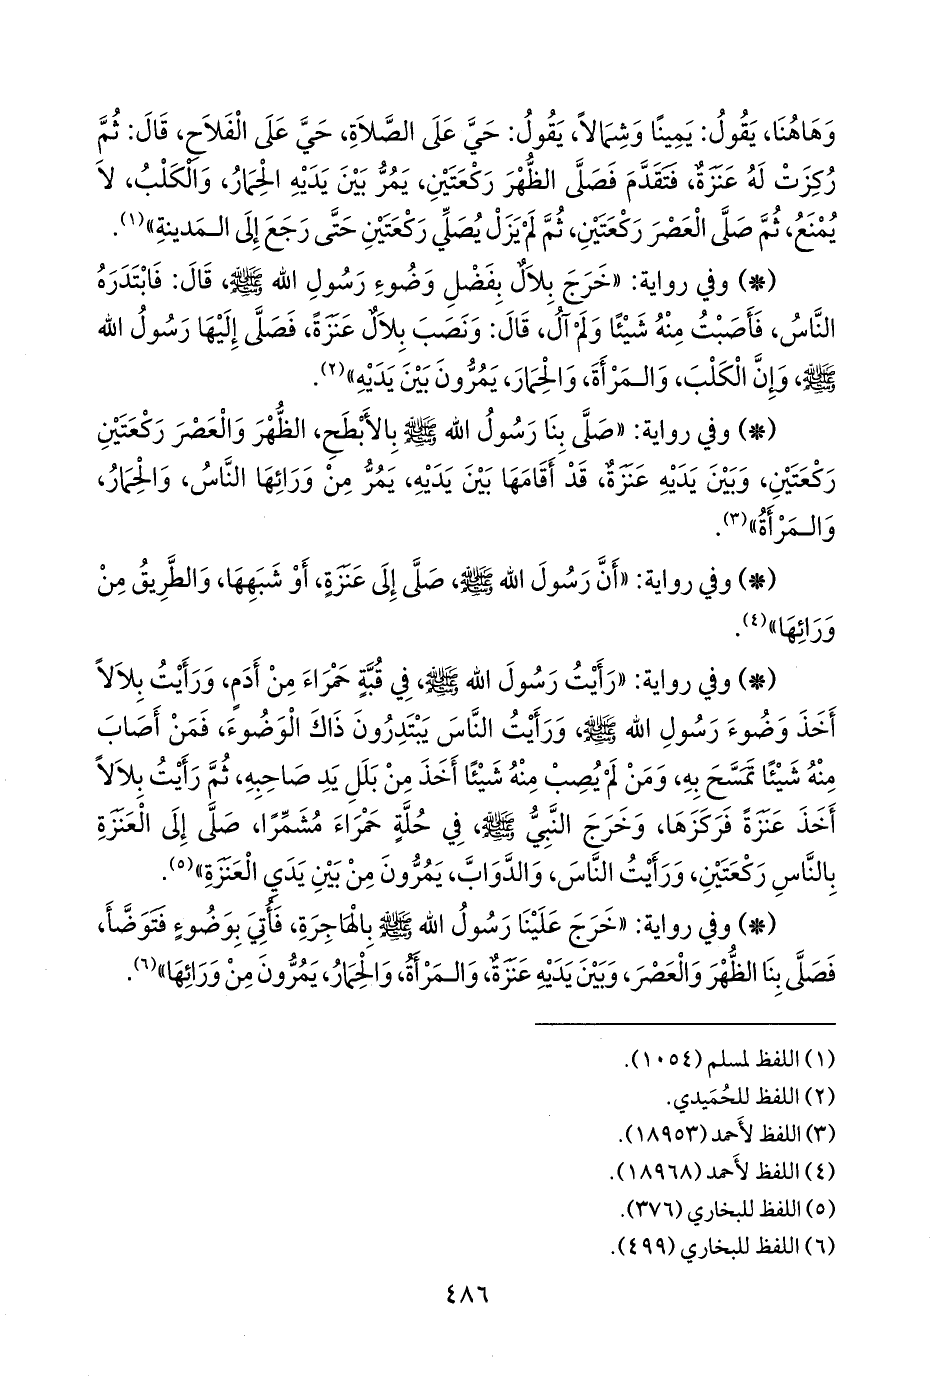 وَهَاهُنَا، يَقُولُ: يَمِينًا وَشِمَالاً، يَقُولُ: حَيَّ عَلَى الصَّلاَةِ، حَيَّ عَلَى الْفَلاَحِ، قَالَ: ثُمَّ
رُكِزَتْ لَهُ عَنَزَةٌ، فَتَقَدَّمَ فَصَلَّى الظُّهْرَ رَكْعَتَيْنِ، يَمُرُّ بَيْنَ يَدَيْهِ الْحِمَارُ، وَالْكَلْبُ، لاَ
يُمْنَعُ، ثُمَّ صَلَّى الْعَصْرَ رَكْعَتَيْنِ، ثُمَّ لَمْ يَزَلْ يُصَلِّي رَكْعَتَيْنِ حَتَّى رَجَعَ إِلَى الـمَدينةِ»(١).
(*) وفي رواية: «خَرَجَ بِلاَلٌ بِفَضْلِ وَضُوءِ رَسُولِ الله ﷺ، قَالَ: فَابْتَدَرَهُ
النَّاسُ، فَأَصَبْتُ مِنْهُ شَيْئًا وَلَمْ آلُ، قَالَ: وَنَصَبَ بِلاَلٌ عَنَزَةً، فَصَلَّى إِلَيْهَا رَسُولُ الله
ﷺ، وَإِنَّ الْكَلْبَ، وَالـمَرْأَةَ، وَالْحِمَارَ، يَمُرُّونَ بَيْنَ يَدَيْهِ»(٢).
(*) وفي رواية: «صَلَّى بِنَا رَسُولُ الله ﷺ بِالأَبْطَحِ، الظُّهْرَ وَالْعَصْرَ رَكْعَتَيْنِ
رَكْعَتَيْنِ، وَبَيْنَ يَدَيْهِ عَنَزَةٌ، قَدْ أَقَامَهَا بَيْنَ يَدَيْهِ، يَمُرُّ مِنْ وَرَائِهَا النَّاسُ، وَالْحِمَارُ،
وَالـمَرْأَةُ»(٣).
(*) وفي رواية: «أَنَّ رَسُولَ الله ﷺ، صَلَّى إِلَى عَنَزَةٍ، أَوْ شَبَهِهَا، وَالطَّرِيقُ مِنْ
وَرَائِهَا»(٤).
(*) وفي رواية: «رَأَيْتُ رَسُولَ الله ﷺ، فِي قُبَّةٍ حَمْرَاءَ مِنْ أَدَمٍ، وَرَأَيْتُ بِلاَلاً
أَخَذَ وَضُوءَ رَسُولِ الله ﷺ، وَرَأَيْتُ النَّاسَ يَبْتَدِرُونَ ذَاكَ الْوَضُوءَ، فَمَنْ أَصَابَ
مِنْهُ شَيْئًا تَمَسَّحَ بِهِ، وَمَنْ لَمْ يُصِبْ مِنْهُ شَيْئًا أَخَذَ مِنْ بَلَلِ يَدِ صَاحِبِهِ، ثُمَّ رَأَيْتُ بِلاَلاً
أَخَذَ عَنَزَةً فَرَكَزَهَا، وَخَرَجَ النَّبِيُّ ﷺ، فِي حُلَّةٍ حَمْرَاءَ مُشَمِّرًا، صَلَّى إِلَى الْعَنَزَةِ
بِالنَّاسِ رَكْعَتَيْنِ، وَرَأَيْتُ النَّاسَ، وَالدَّوَابَّ، يَمُرُّونَ مِنْ بَيْنِ يَدَيِ الْعَنَزَةِ»(٥).
(*) وفي رواية: «خَرَجَ عَلَيْنَا رَسُولُ الله ﷺ بِالْهَاجِرَةِ، فَأُتِيَ بِوَضُوءٍ فَتَوَضَّأَ،
فَصَلَّى بِنَا الظُّهْرَ وَالْعَصْرَ، وَبَيْنَ يَدَيْهِ عَنَزَةٌ، وَالـمَرْأَةُ، وَالْحِمَارُ، يَمُرُّونَ مِنْ وَرَائِهَا»(٦).
(١) اللفظ لمسلم (١٠٥٤).
(٢) اللفظ للحُمَيدي.
(٣) اللفظ لأَحمد (١٨٩٥٣).
(٤) اللفظ لأَحمد (١٨٩٦٨).
(٥) اللفظ للبخاري (٣٧٦).
(٦) اللفظ للبخاري (٤٩٩).
٤٨٦